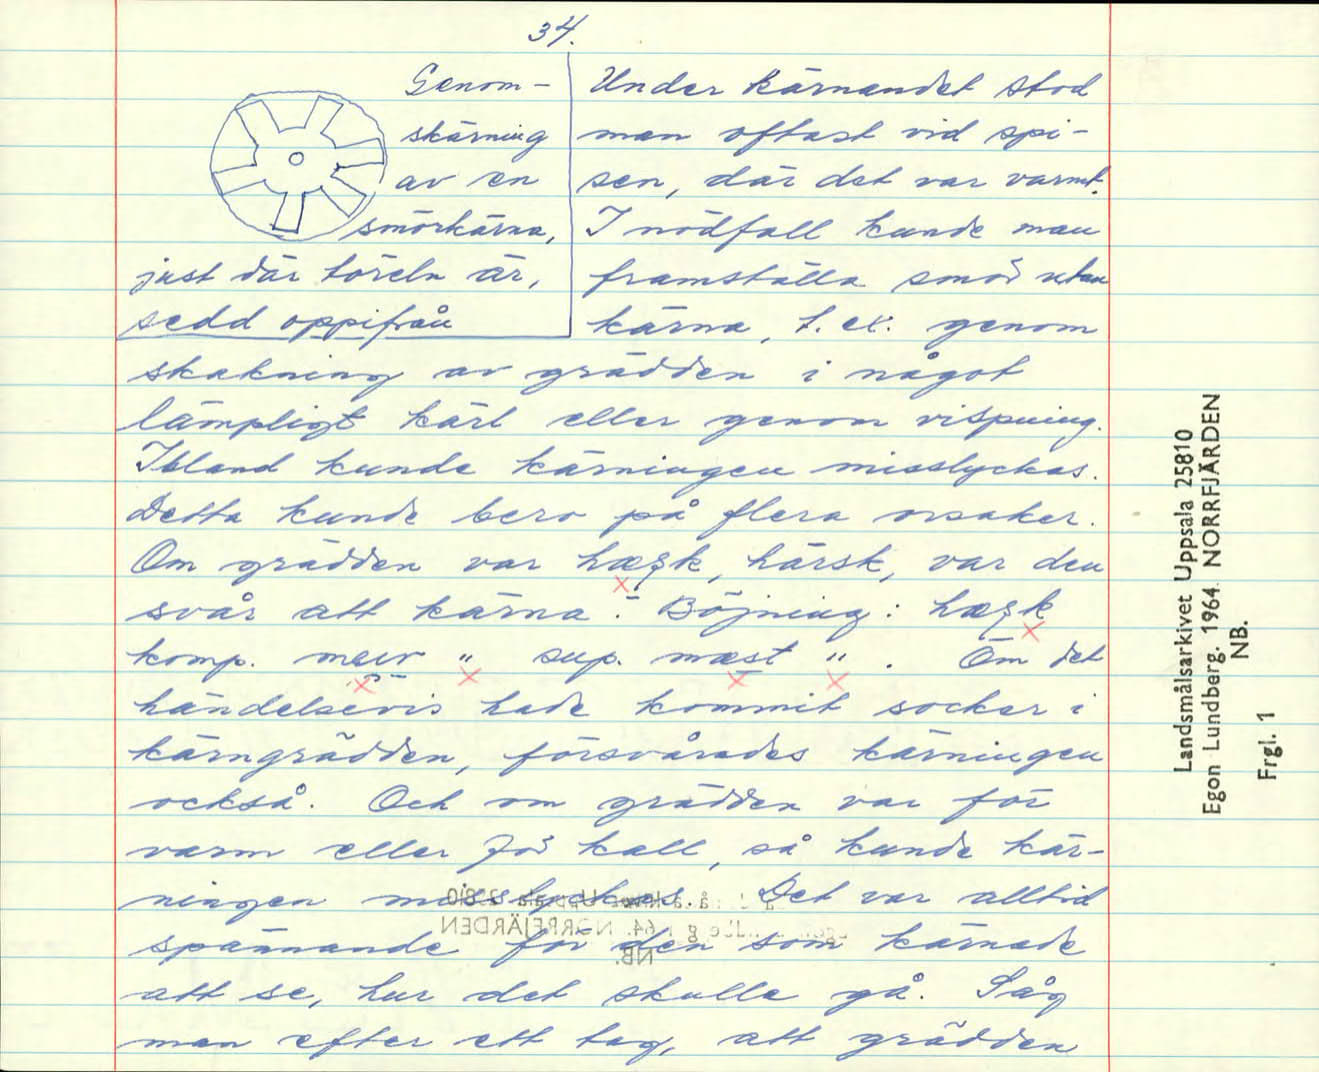 34.
Genom-
skärning
av en
smörkärna,
just där töreln är,
sedd oppifrån
Under kärnandet stod
man oftast vid spi-
sen, där det var varmt.
I nödfall kunde man
framställa smör utan
kärna, t. ex. genom
skakning av grädden i något
lämpligt kärl eller genom vispning.
Ibland kunde kärningen misslyckas.
Detta kunde bero på flera orsaker.
Om grädden var hæʂk, härsk, var den
svår att kärna. Böjning: hæʂk
komp. meir " sup. mæst ". Om det
händelsevis hade kommit socker i
kärngrädden, försvårades kärningen
också. Och om grädden var för
varm eller för kall, så kunde kär-
ningen misslyckas. Det var alltid
spännande för den som kärnade
att se, hur det skulle gå. Såg
man efter ett tag, att grädden
Landsmålsarkivet Uppsala 25810
Egon Lundberg. 1964. NORRFJÄRDEN
NB.
Frgl. 1